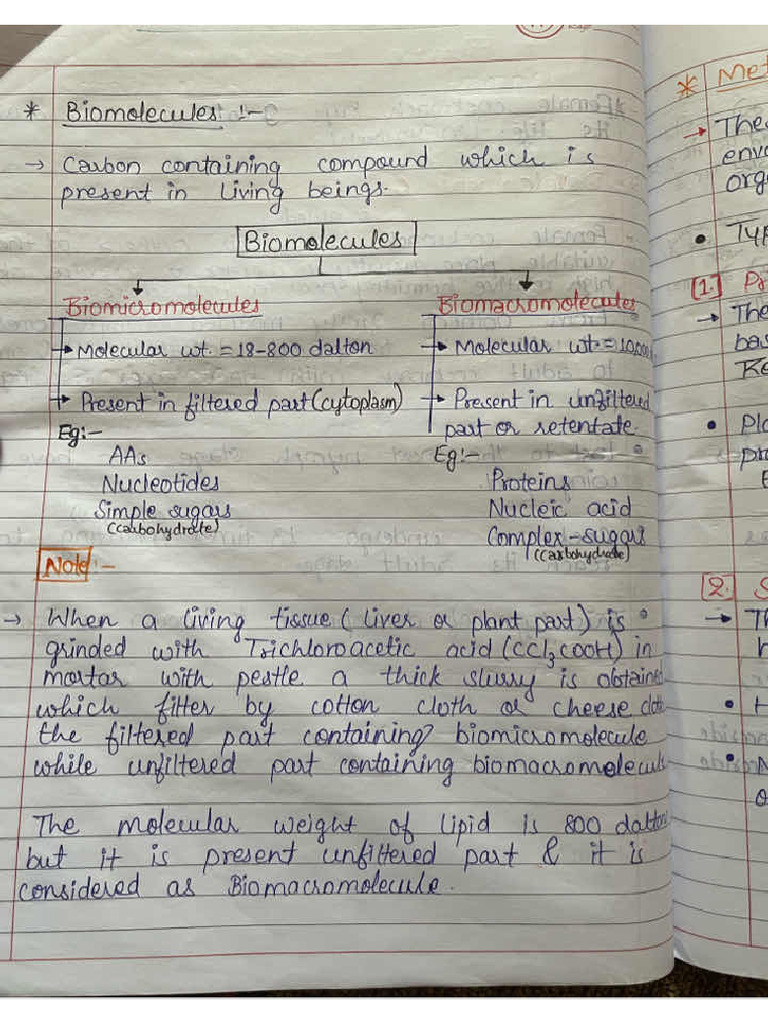 * Biomolecules :-
→ Carbon containing compound which is
present in living beings.
Biomolecules
Biomicromolecules
→ Molecular wt. = 18-800 dalton
→ Present in filtered part (cytoplasm)
Eg:-
AAs
Nucleotides
Simple sugars
(carbohydrate)
Biomacromolecules
→ Molecular wt. = 10,000
→ Present in unfiltered
part or retentate.
Eg:-
Proteins
Nucleic acid
Complex-sugars
(Carbohydrate)
Note :-
→ When a living tissue (liver or plant part) is
grinded with Trichloroacetic acid (CCl3COOH) in
mortar with pestle a thick slurry is obtained
which filter by cotton cloth or cheese cloth
the filtered part containing biomicromolecule
while unfiltered part containing biomacromolecule
The molecular weight of lipid is 800 dalton
but it is present unfiltered part & it is
considered as Biomacromolecule.
* Met
→ The
env
org
• Typ
[1.] P
→ The
bas
• Pl
pr
[2.] S
→ Th
h
• H
• N
o